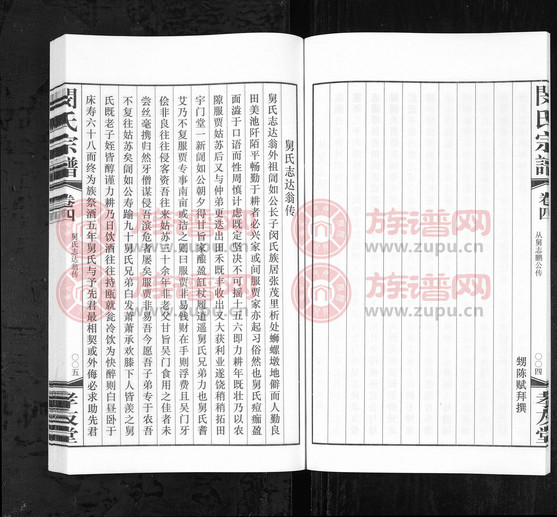 閔氏宗譜
卷四
从舅志鹏公传
〇〇四
孝友堂
甥陈赋拜撰
舅氏志达翁传
舅氏志达翁外祖阔如公长子闵氏族居张茂里析处蛳螺墩地僻而人勤良
田美池阡陌平畅勤于耕者必兴家或间服贾家亦起习俗然也舅氏痘瘢盈
面澁于口语而性周慎计虑既定坚决不可摇十五六即力耕年既壮乃以农
隙服贾姑苏后又与仲弟更迭出田禾既丰收出又大获利业遂饶稍稍拓田
宇门堂一新阔如公朝夕得甘旨家酿盈缸杖履逍遥舅氏兄弟力也舅氏耆
艾乃不复服贾专事南亩或诘之则曰服贾非易钱财在手则浮费且吴门牙
侩非良往往侵客资吾往来姑苏三十余年非老父甘旨吴门食用之佳者未
尝丝毫携归然牙僧谋侵吾滨危者屡矣服贾非易吾今愿吾子弟专于农吾
不复往姑苏矣阔如公寿踰九十舅氏兄弟白发萧萧承欢膝下人皆羡之舅
氏既老子姪皆醇谨力耕乃日饮酒往往持瓶就瓮冷饮为快醉则白昼卧于
床寿六十八而终为族祭酒五年舅氏与予先君最相契或外侮必求助先君
閔氏宗譜
卷四
舅氏志达翁传
〇〇五
孝友堂
族谱网
www.zupu.cn
族谱网
www.zupu.cn
族谱网
www.zupu.cn
族谱网
www.zupu.cn